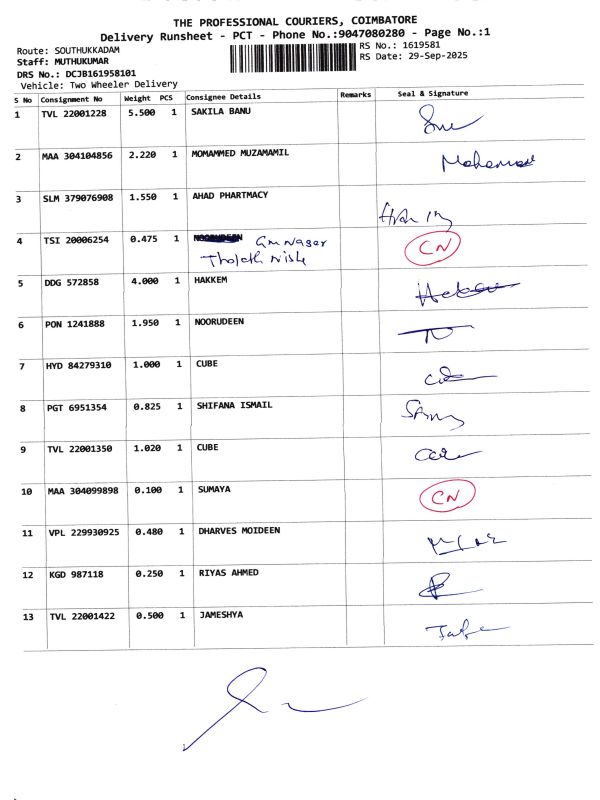 THE PROFESSIONAL COURIERS, COIMBATORE
Delivery Runsheet - PCT - Phone No.:9047080280 - Page No.:1
Route: SOUTHUKKADAM
RS No.: 1619581
Staff: MUTHUKUMAR
RS Date: 29-Sep-2025
DRS No.: DCJB161958101
Vehicle: Two Wheeler Delivery
S No Consignment No Weight PCS Consignee Details Remarks Seal & Signature
1 TVL 22001228 5.500 1 SAKILA BANU
2 MAA 304104856 2.220 1 MOMAMMED MUZAMAMIL
3 SLM 379076908 1.550 1 AHAD PHARTMACY
4 TSI 20006254 0.475 1 NOORUDEEN CN
5 DDG 572858 4.000 1 HAKKEM
6 PON 1241888 1.950 1 NOORUDEEN
7 HYD 84279310 1.000 1 CUBE
8 PGT 6951354 0.825 1 SHIFANA ISMAIL
9 TVL 22001350 1.020 1 CUBE
10 MAA 304099898 0.100 1 SUMAYA CN
11 VPL 229930925 0.480 1 DHARVES MOIDEEN
12 KGD 987118 0.250 1 RIYAS AHMED
13 TVL 22001422 0.500 1 JAMESHYA